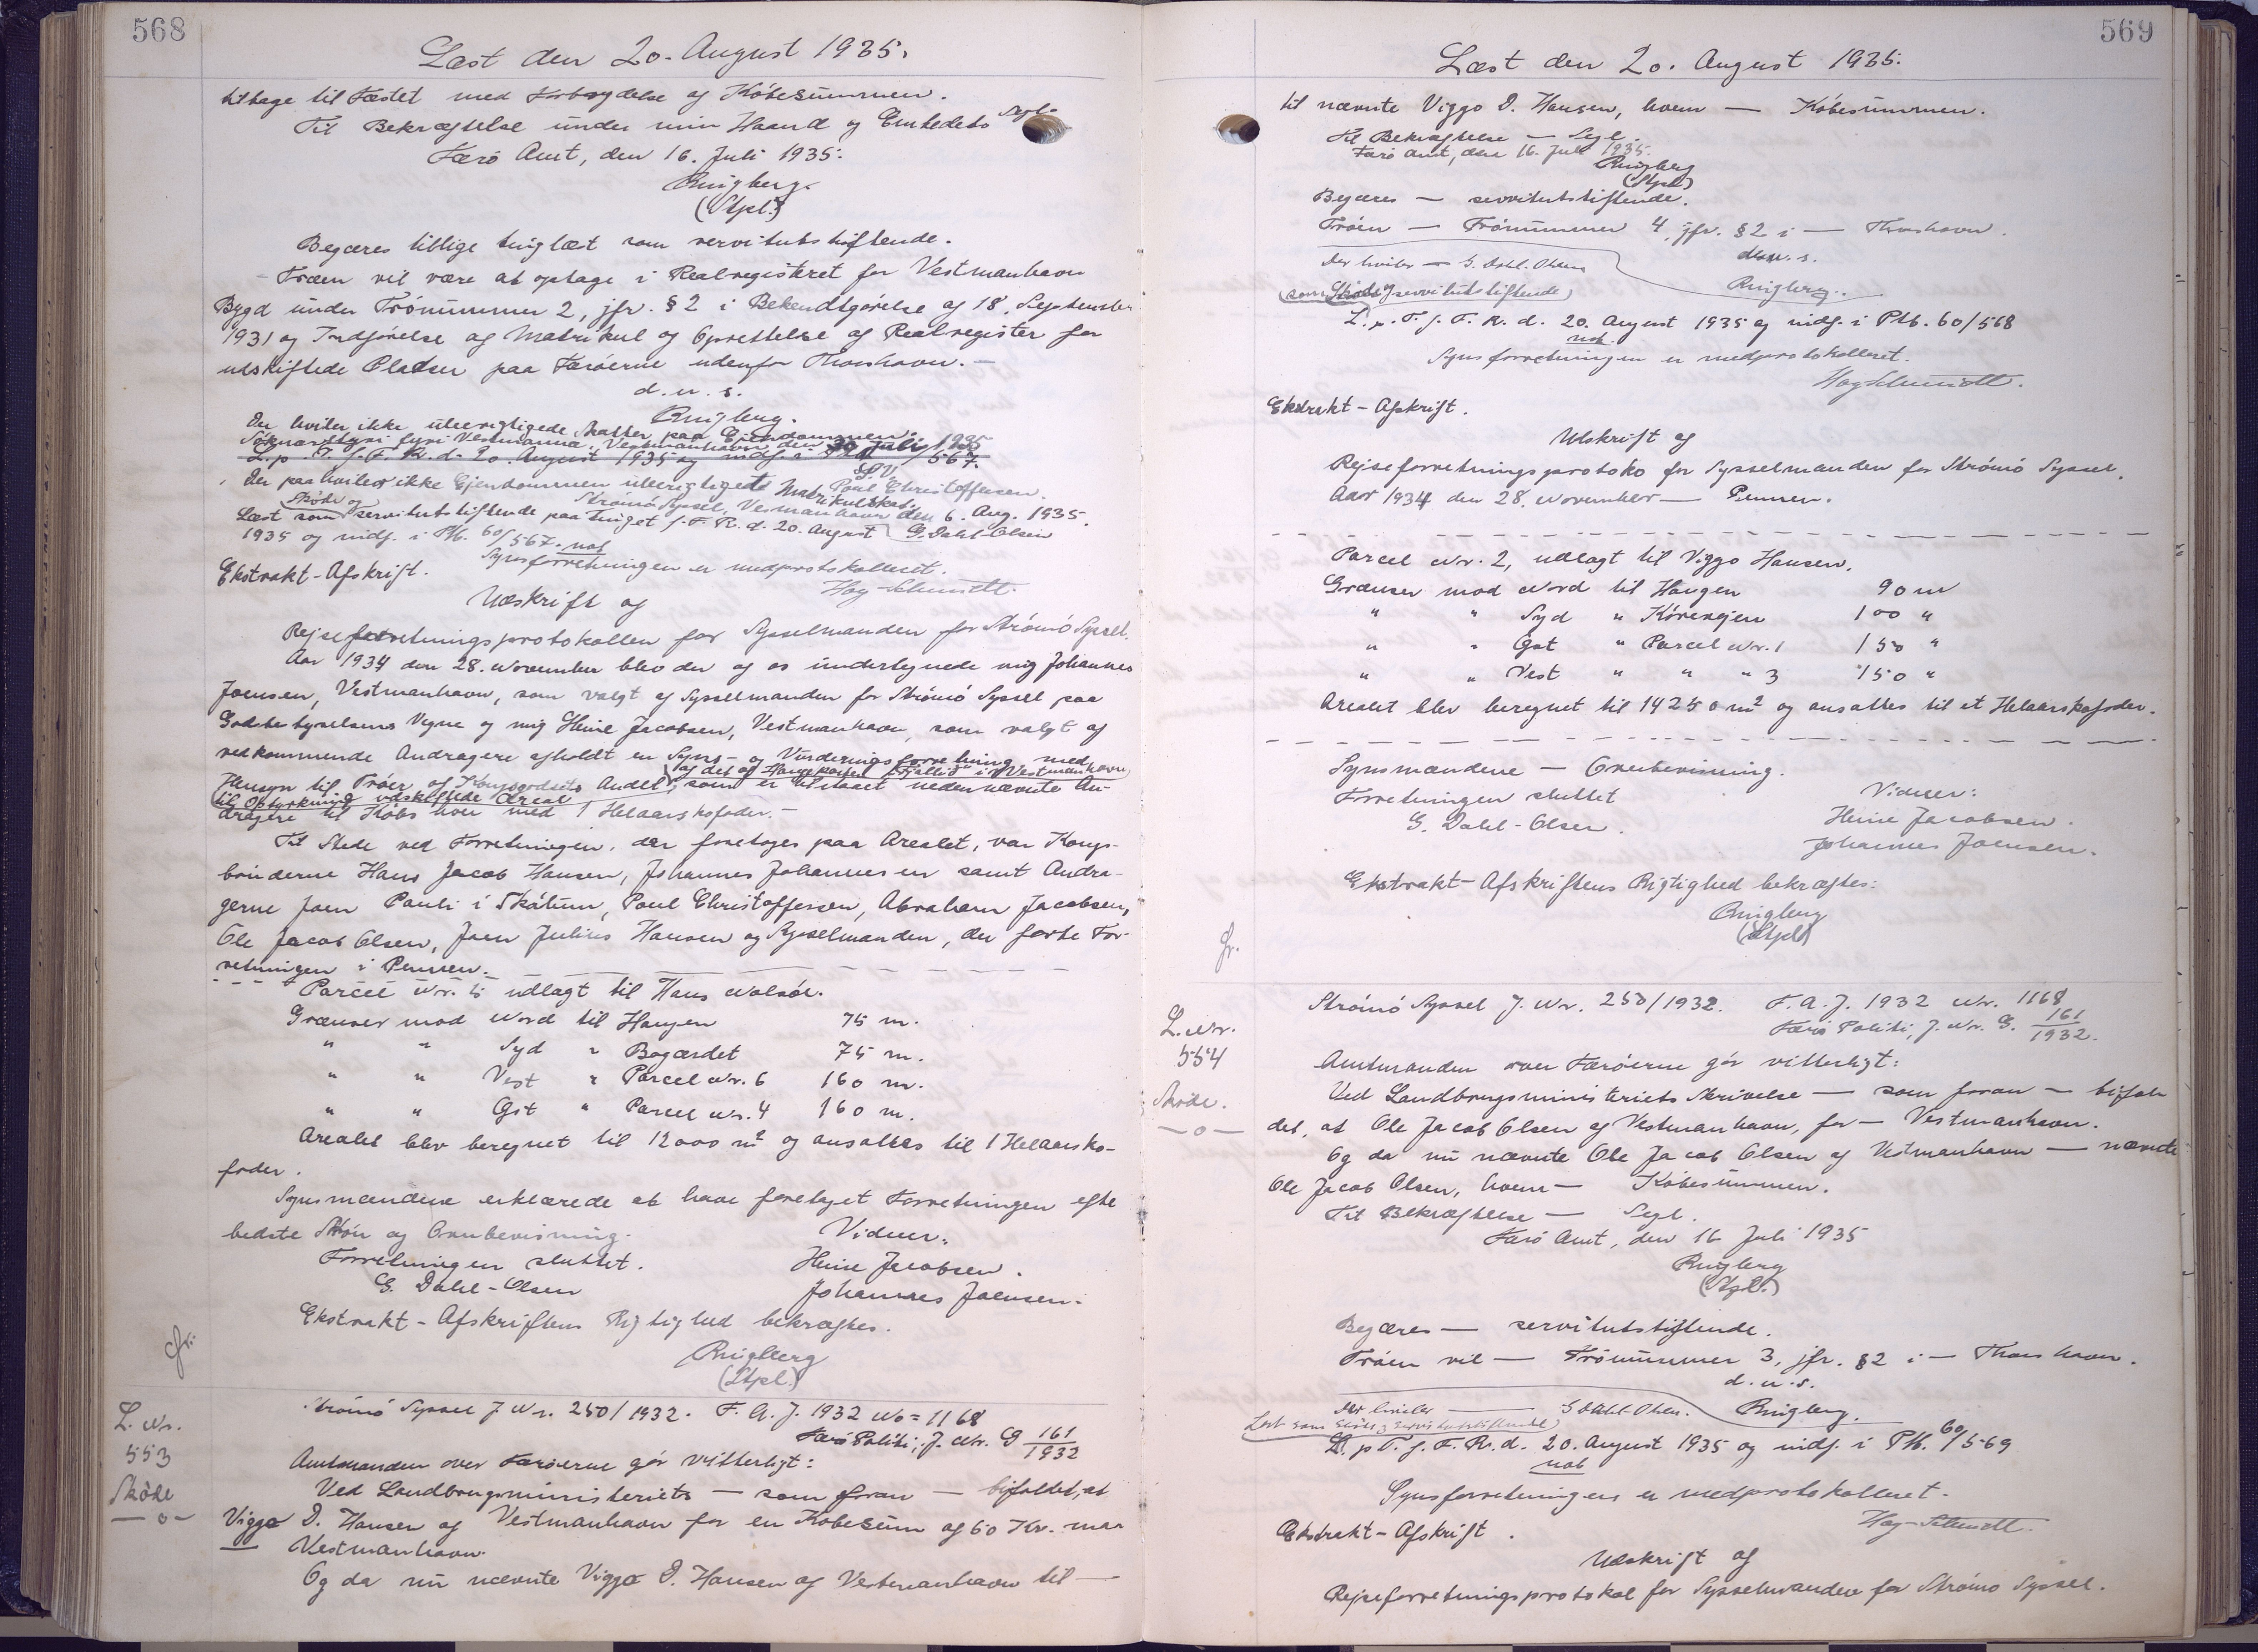 568
Læst den 20. August 1935.
tilbage til Fæstet med Fortrydelse af Købesummen.
Til Bekræftelse under min Haand og Embedets Segl.
Færø Amt, den 16. Juli 1935.
Ringberg.
(Stpl.)
Begæres tillige tinglæst som servitutstiftende.
Trøen vil være at optage i Realregistret for Vestmanhavn
Bygd under Trønummer 2, jfr. § 2 i Bekendtgørelse af 18. September
1931 og Indførelse af Matrikul og Oprettelse af Realregister for
udskiftede Pladser paa Færøerne udenfor Thorshavn. —
d. u. s.
Ringberg.
Der hviler ikke uberigtigede Skatter paa Ejendommen.
Soknarstýri fyri Vestmanna, Vestmanhavn den 30 Juli 1935
L. p. T. f. F. R. d. 20. August 1935 og indf. i 567.
Poul Christoffersen.
Der paahviler ikke Ejendommen uberigtigede Matrikulskat.
Strømø Syssel, Vestmanhavn den 6. Aug. 1935.
Læst som Skøde og servitutstiftende paa Tinget f. F. R. d. 20. August G. Dahl-Olsen
1935 og indf. i Ptk. 60/567. not
Synsforretningen er medprotokolleret.
Høg-Schmidt.
Ekstrakt-Afskrift.
Udskrift af
Rejseforretningsprotokollen for Sysselmanden for Strømø Syssel.
Aar 1934 den 28. November blev der af os undertegnede mig Johannes
Joensen, Vestmanhavn, som valgt af Sysselmanden for Strømø Syssel paa
Godsbestyrelsens Vegne og mig Heine Jacobsen, Vestmanhavn, som valgt af
vedkommende Andragere afholdt en Syns- og Vurderingsforretning med
Hensyn til Trøer af Kongsgodsets Andel (af det af Haugeparten Fjallið i Vestmanhavn
til Opdyrkning udskiftede Areal), som er tilstaaet nedennævnte An-
dragere til Købs hver med 1 Helaarskofoder. —
Til Stede ved Forretningen, der foretoges paa Arealet, var Kongs-
bønderne Hans Jacob Hansen, Johannes Johannesen samt Andra-
gerne Joen Pauli í Skálum, Poul Christoffersen, Abraham Jacobsen,
Ole Jacob Olsen, Joen Julius Hansen og Sysselmanden, der førte For-
retningen i Pennen.
Parcel Nr. 5 udlagt til Hans Nolsøe.
Grænser mod Nord til Haugen 75 m.
" " Syd " Bøgærdet 75 m.
" " Vest " Parcel Nr. 6 160 m.
" " Øst " Parcel Nr. 4 160 m.
Arealet blev beregnet til 12000 m² og ansattes til 1 Helaarsko-
foder.
Synsmændene erklærede at have foretaget Forretningen efter
bedste Skøn og Overbevisning.
Forretningen sluttet. Vidner:
G. Dahl-Olsen Heine Jacobsen.
Johannes Joensen.
Ekstrakt-Afskriftens Rigtighed bekræftes.
Ringberg
(Stpl.)
Gr.
L. Nr.
553
Skøde
—o—
Strømø Syssel J. Nr. 250/1932. F. A. J. 1932 No = 1168
Færø Politi, J. Nr. G 161/1932
Amtmanden over Færøerne gør vitterligt:
Ved Landbrugsministeriets — som foran — bifaldet, at
Viggo D. Hansen af Vestmanhavn for en Købesum af 60 Kr.
Vestmanhavn.
Og da nu nævnte Viggo D. Hansen af Vestmanhavn til —
569
Læst den 20. August 1935.
til nævnte Viggo D. Hansen, hvem — Købesummen.
Til Bekræftelse — Segl.
Færø Amt, den 16. Juli 1935.
Ringberg
(Stpl.)
Begæres — servitutstiftende.
Trøen — Trønummer 4, jfr. § 2 i — Thorshavn.
d. u. s.
Der hviler — G. Dahl-Olsen
Ringberg.
(som Skøde og servitutstiftende)
L. p. T. f. F. R. d. 20. August 1935 og indf. i Ptk. 60/568
not.
Synsforretningen er medprotokolleret.
Høg-Schmidt.
Ekstrakt-Afskrift.
Udskrift af
Rejseforretningsprotoko for Sysselmanden for Strømø Syssel.
Aar 1934 den 28. November — Pennen.
Parcel Nr. 2, udlagt til Viggo Hansen.
Grænser mod Nord til Haugen 90 m
" " Syd " Kørevejen 100 "
" " Øst " Parcel Nr. 1 150 "
" " Vest " " " 3 150 "
Arealet blev beregnet til 14250 m² og ansattes til et Helaarskofoder.
Synsmændene — Overbevisning.
Forretningen sluttet Vidner:
G. Dahl-Olsen. Heine Jacobsen.
Johannes Joensen.
Ekstrakt-Afskriftens Rigtighed bekræftes:
Ringberg
(Stpl.)
Gr.
L. Nr.
554
Skøde.
—o—
Strømø Syssel J. Nr. 250/1932. F. A. J. 1932 Nr. 1168
Færø Politi, J. Nr. G. 161/1932.
Amtmanden over Færøerne gør vitterligt:
Ved Landbrugsministeriets Skrivelse — som foran — bifal-
det, at Ole Jacob Olsen af Vestmanhavn, for — Vestmanhavn.
Og da nu nævnte Ole Jacob Olsen af Vestmanhavn — nævnte
Ole Jacob Olsen, hvem — Købesummen.
Til Bekræftelse — Segl.
Færø Amt, den 16 Juli 1935
Ringberg
(Stpl.)
Begæres — servitutstiftende.
Trøen vil — Trønummer 3, jfr. § 2 i — Thorshavn.
d. u. s.
Der hviler — G. Dahl-Olsen. Ringberg.
Læst som Skøde og servitutstiftende)
L. p. T. f. F. R. d. 20. August 1935 og indf. i Ptk. 60/569
not
Synsforretningen er medprotokolleret.
Høg-Schmidt.
Ekstrakt-Afskrift.
Udskrift af
Rejseforretningsprotokol for Sysselmanden for Strømø Syssel.